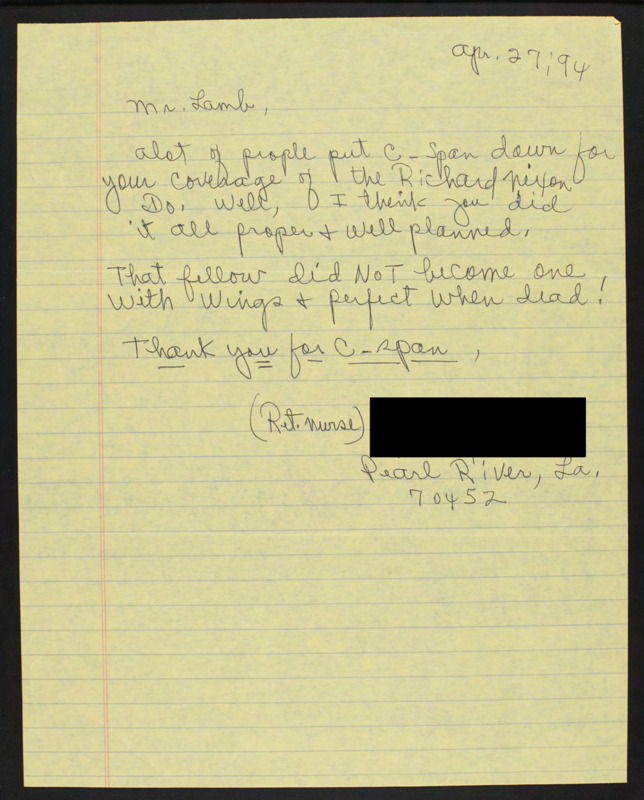 Apr. 27, '94
Mr. Lamb,
alot of people put C-Span down for
your coverage of the Richard Nixon
Do. Well, I think you did
it all proper & well planned.
That fellow did NOT become one
with wings & perfect when dead!
Thank you for C-span,
(Ret. nurse)
Pearl River, La.
70452